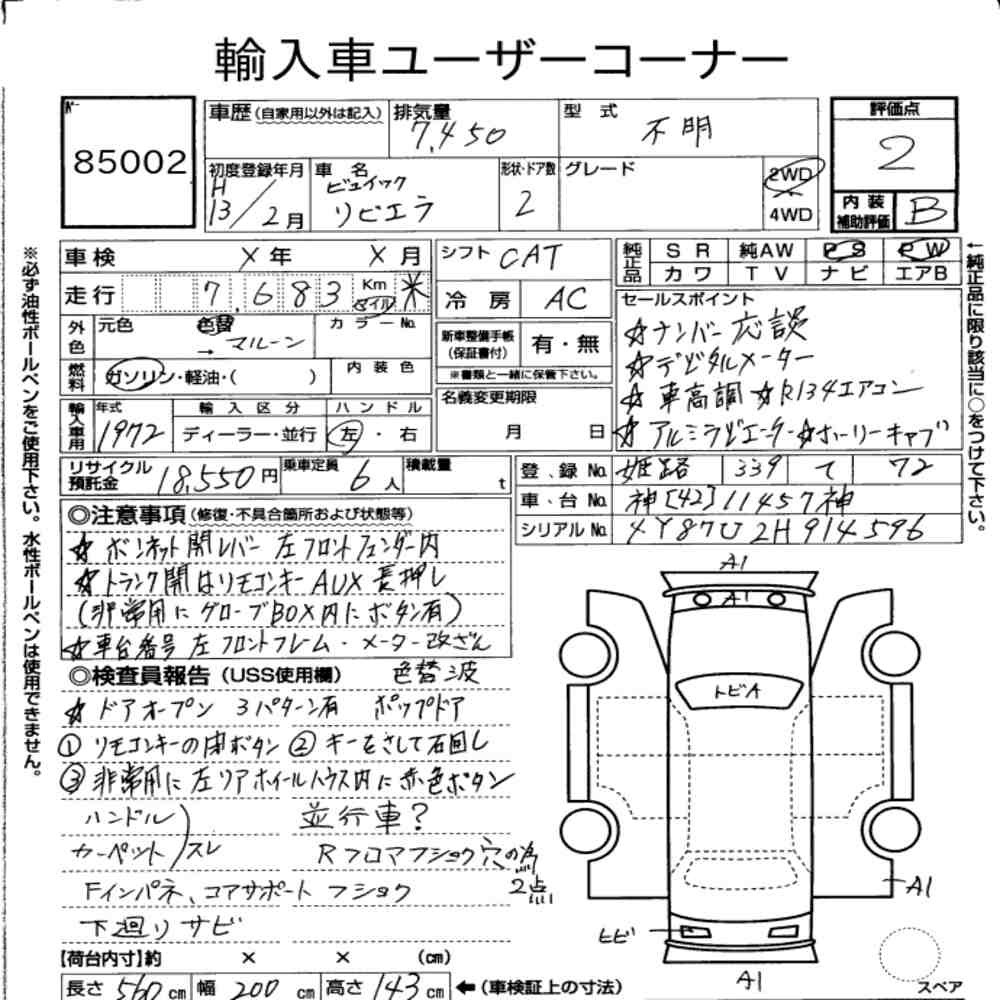 輸入車ユーザーコーナー
85002
車歴(自家用以外は記入) 排気量 7,450 型式 不明
評価点 2
初度登録年月 H 13/2月 車名 ビュイック リビエラ 形状・ドア数 2 グレード 2WD 4WD
内装補助評価 B
車検 X年 X月 シフト CAT
純正品 SR 純AW PS PW
カワ TV ナビ エアB
走行 7,683 Km マイル ＊
冷房 AC
外色 元色 色替 → マルーン カラーNo.
新車整備手帳(保証書付) 有・無
※書類と一緒に保管下さい。
燃料 ガソリン・軽油・( ) 内装色
名義変更期限 月 日
輸入車用 年式 1972 輸入区分 ディーラー・並行 ハンドル 左・右
セールスポイント
☆ナンバー応談
☆デジタルメーター
☆車高調 ☆R134エアコン
☆アルミラジエーター ☆ホーリーキャブ
リサイクル預託金 18,550円 乗車定員 6人 積載量 t
登録No. 姫路 339 て 72
車台No. 神[42]11457神
シリアルNo. 4Y87U2H914596
◎注意事項(修復・不具合箇所および状態等)
☆ボンネット開レバー左フロントフェンダー内
☆トランク開はリモコンキーAUX長押し
(非常用にグローブBOX内にボタン有)
☆車台番号左フロントフレーム・メーター改ざん
◎検査員報告(USS使用欄) 色替 波
☆ドアオープン 3パターン有 ポップドア
①リモコンキーの開ボタン ②キーをさして右回し
③非常用に左リアホイールハウス内に赤色ボタン
ハンドル 並行車?
カーペット スレ Rフロアフショク穴の為 2点
Fインパネ、コアサポート フショク
下廻りサビ
【荷台内寸】約 × × (cm)
長さ 560cm 幅 200cm 高さ 143cm ←(車検証上の寸法)
※必ず油性ボールペンをご使用下さい。水性ボールペンは使用できません。
←純正品に限り該当に○をつけて下さい。
A1
A1
トビA
A1
ヒビ
A1
スペア